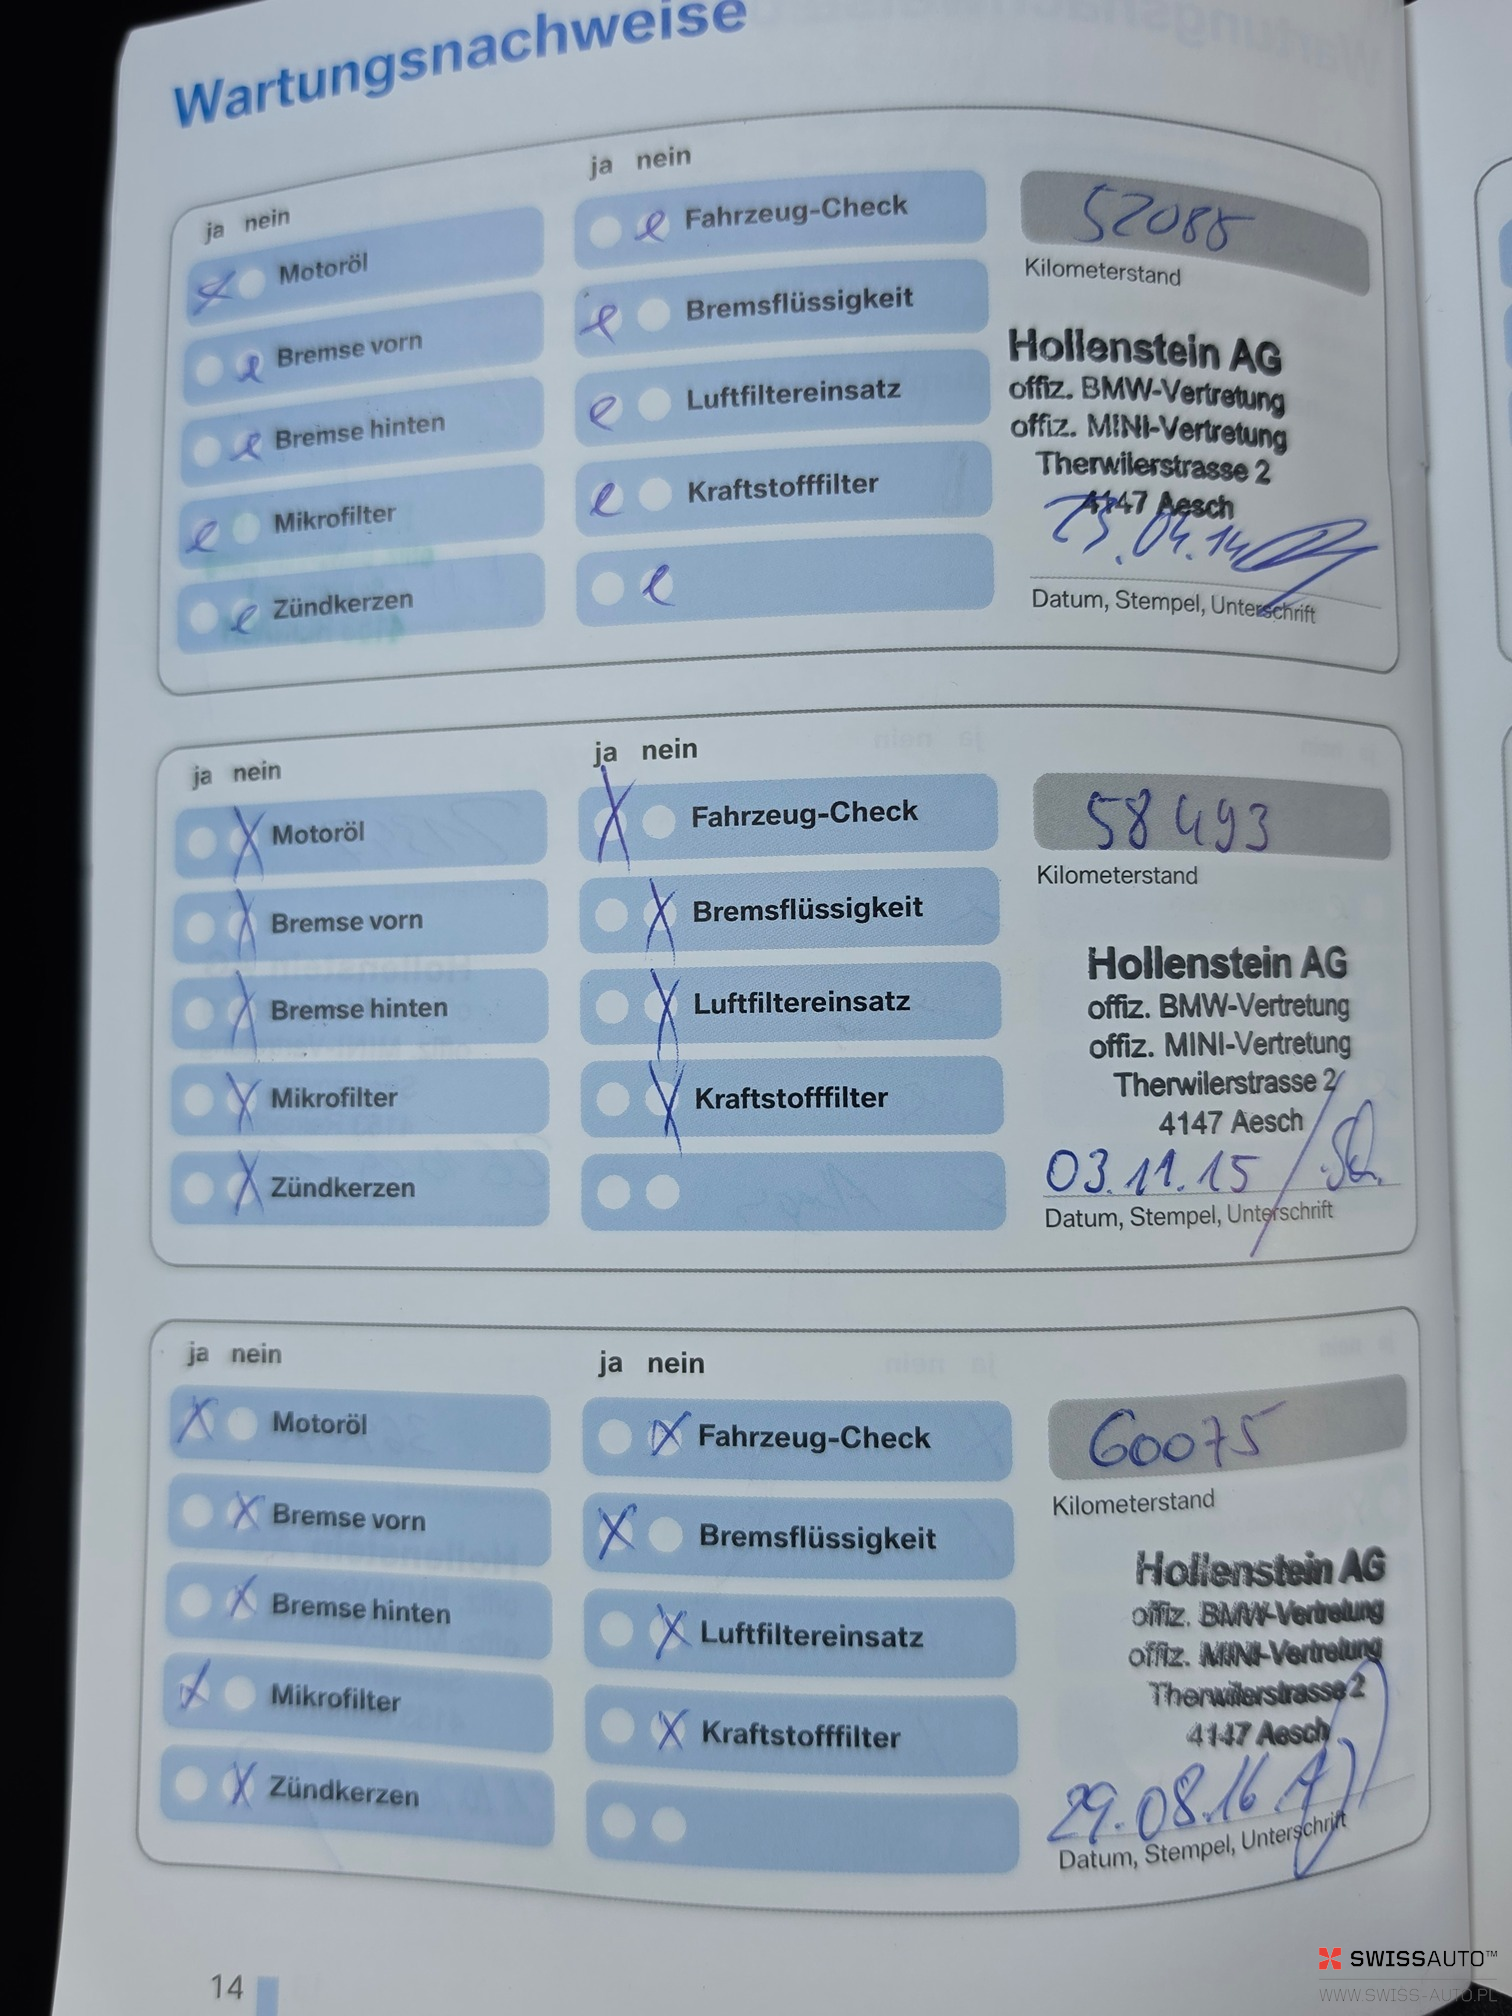 Wartungsnachweise
ja nein
Motoröl
Bremse vorn
Bremse hinten
Mikrofilter
Zündkerzen
ja nein
Fahrzeug-Check
Bremsflüssigkeit
Luftfiltereinsatz
Kraftstofffilter
52088
Kilometerstand
Hollenstein AG
offiz. BMW-Vertretung
offiz. MINI-Vertretung
Therwilerstrasse 2
4147 Aesch
23.04.14
Datum, Stempel, Unterschrift
ja nein
Motoröl
Bremse vorn
Bremse hinten
Mikrofilter
Zündkerzen
ja nein
Fahrzeug-Check
Bremsflüssigkeit
Luftfiltereinsatz
Kraftstofffilter
58493
Kilometerstand
Hollenstein AG
offiz. BMW-Vertretung
offiz. MINI-Vertretung
Therwilerstrasse 2
4147 Aesch
03.11.15
Datum, Stempel, Unterschrift
ja nein
Motoröl
Bremse vorn
Bremse hinten
Mikrofilter
Zündkerzen
ja nein
Fahrzeug-Check
Bremsflüssigkeit
Luftfiltereinsatz
Kraftstofffilter
60075
Kilometerstand
Hollenstein AG
offiz. BMW-Vertretung
offiz. MINI-Vertretung
Therwilerstrasse 2
4147 Aesch
29.08.16
Datum, Stempel, Unterschrift
14
SWISSAUTO™
WWW.SWISS-AUTO.PL